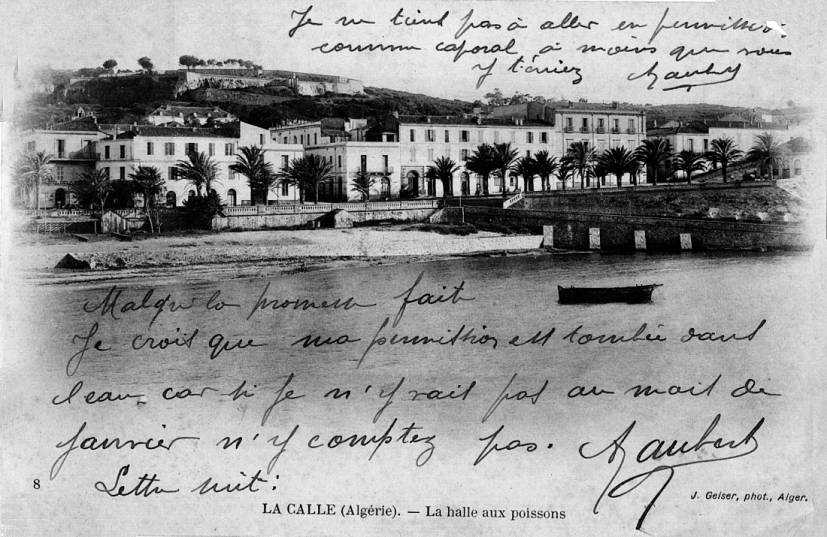 Je ne tient pas à aller en permission
comme caporal, à moins que vous
y teniez
Malgre la promesse fait
Je crois que ma permission est tombée dans
l'eau car si Je n'y rait pas au mois de
janvier n'y comptez pas. Haubert
Lettre suit:
8
J. Geiser, phot., Alger.
LA CALLE (Algérie). — La halle aux poissons